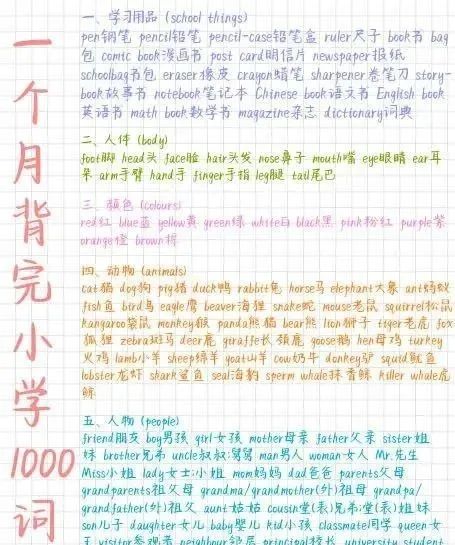 一个月背完小学1000词
一、学习用品 (school things)
pen钢笔 pencil铅笔 pencil-case铅笔盒 ruler尺子 book书 bag
包 comic book漫画书 post card明信片 newspaper报纸
schoolbag书包 eraser橡皮 crayon蜡笔 sharpener卷笔刀 story-
book故事书 notebook笔记本 Chinese book语文书 English book
英语书 math book数学书 magazine杂志 dictionary词典
二、人体 (body)
foot脚 head头 face脸 hair头发 nose鼻子 mouth嘴 eye眼睛 ear耳
朵 arm手臂 hand手 finger手指 leg腿 tail尾巴
三、颜色 (colours)
red红 blue蓝 yellow黄 green绿 white白 black黑 pink粉红 purple紫
orange橙 brown棕
四、动物 (animals)
cat猫 dog狗 pig猪 duck鸭 rabbit兔 horse马 elephant大象 ant蚂蚁
fish鱼 bird鸟 eagle鹰 beaver海狸 snake蛇 mouse老鼠 squirrel松鼠
kangaroo袋鼠 monkey猴 panda熊猫 bear熊 lion狮子 tiger老虎 fox
狐狸 zebra斑马 deer鹿 giraffe长颈鹿 goose鹅 hen母鸡 turkey
火鸡 lamb小羊 sheep绵羊 goat山羊 cow奶牛 donkey驴 squid鱿鱼
lobster龙虾 shark鲨鱼 seal海豹 sperm whale抹香鲸 killer whale虎
鲸
五、人物 (people)
friend朋友 boy男孩 girl女孩 mother母亲 father父亲 sister姐
妹 brother兄弟 uncle叔叔;舅舅 man男人 woman女人 Mr.先生
Miss小姐 lady女士;小姐 mom妈妈 dad爸爸 parents父母
grandparents祖父母 grandma/grandmother(外)祖母 grandpa/
grandfather(外)祖父 aunt姑姑 cousin堂(表)兄弟;堂(表)姐妹
son儿子 daughter女儿 baby婴儿 kid小孩 classmate同学 queen女
王 visitor参观者 neighbour邻居 principal校长 university student